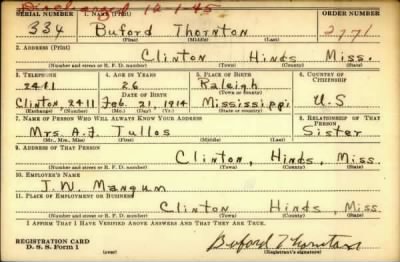 Discharged 12-1-45
SERIAL NUMBER 1. NAME (Print) ORDER NUMBER
334 Buford Thornton 2771
(First) (Middle) (Last)
2. ADDRESS (Print)
Clinton Hinds Miss.
(Number and street or R. F. D. number) (Town) (County) (State)
3. TELEPHONE 4. AGE IN YEARS 5. PLACE OF BIRTH 6. COUNTRY OF CITIZENSHIP
2411 26 Raleigh
DATE OF BIRTH (Town or county)
Clinton 2411 Feb. 21, 1914 Mississippi U.S
(Exchange) (Number) (Mo.) (Day) (Yr.) (State or country)
7. NAME OF PERSON WHO WILL ALWAYS KNOW YOUR ADDRESS 8. RELATIONSHIP OF THAT PERSON
Mrs. A.J. Tullos Sister
(Mr., Mrs., Miss) (First) (Middle) (Last)
9. ADDRESS OF THAT PERSON
Clinton, Hinds, Miss.
(Number and street or R. F. D. number) (Town) (County) (State)
10. EMPLOYER'S NAME
J.W. Mangum
11. PLACE OF EMPLOYMENT OR BUSINESS
Clinton Hinds, Miss
(Number and street or R. F. D. number) (Town) (County) (State)
I AFFIRM THAT I HAVE VERIFIED ABOVE ANSWERS AND THAT THEY ARE TRUE.
REGISTRATION CARD
D. S. S. Form 1 Buford Thornton
(Registrant's signature)